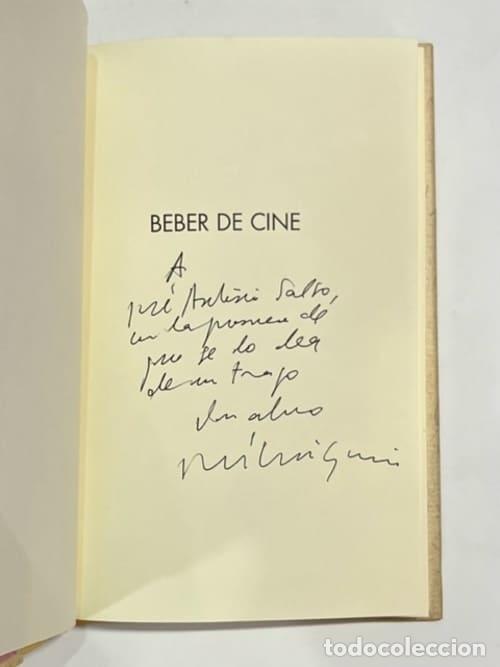 BEBER DE CINE
A
José Antonio Salso,
con la promesa de
que se lo lea
de un trago
Un abrazo
José Luis
todocoleccion
todocoleccion